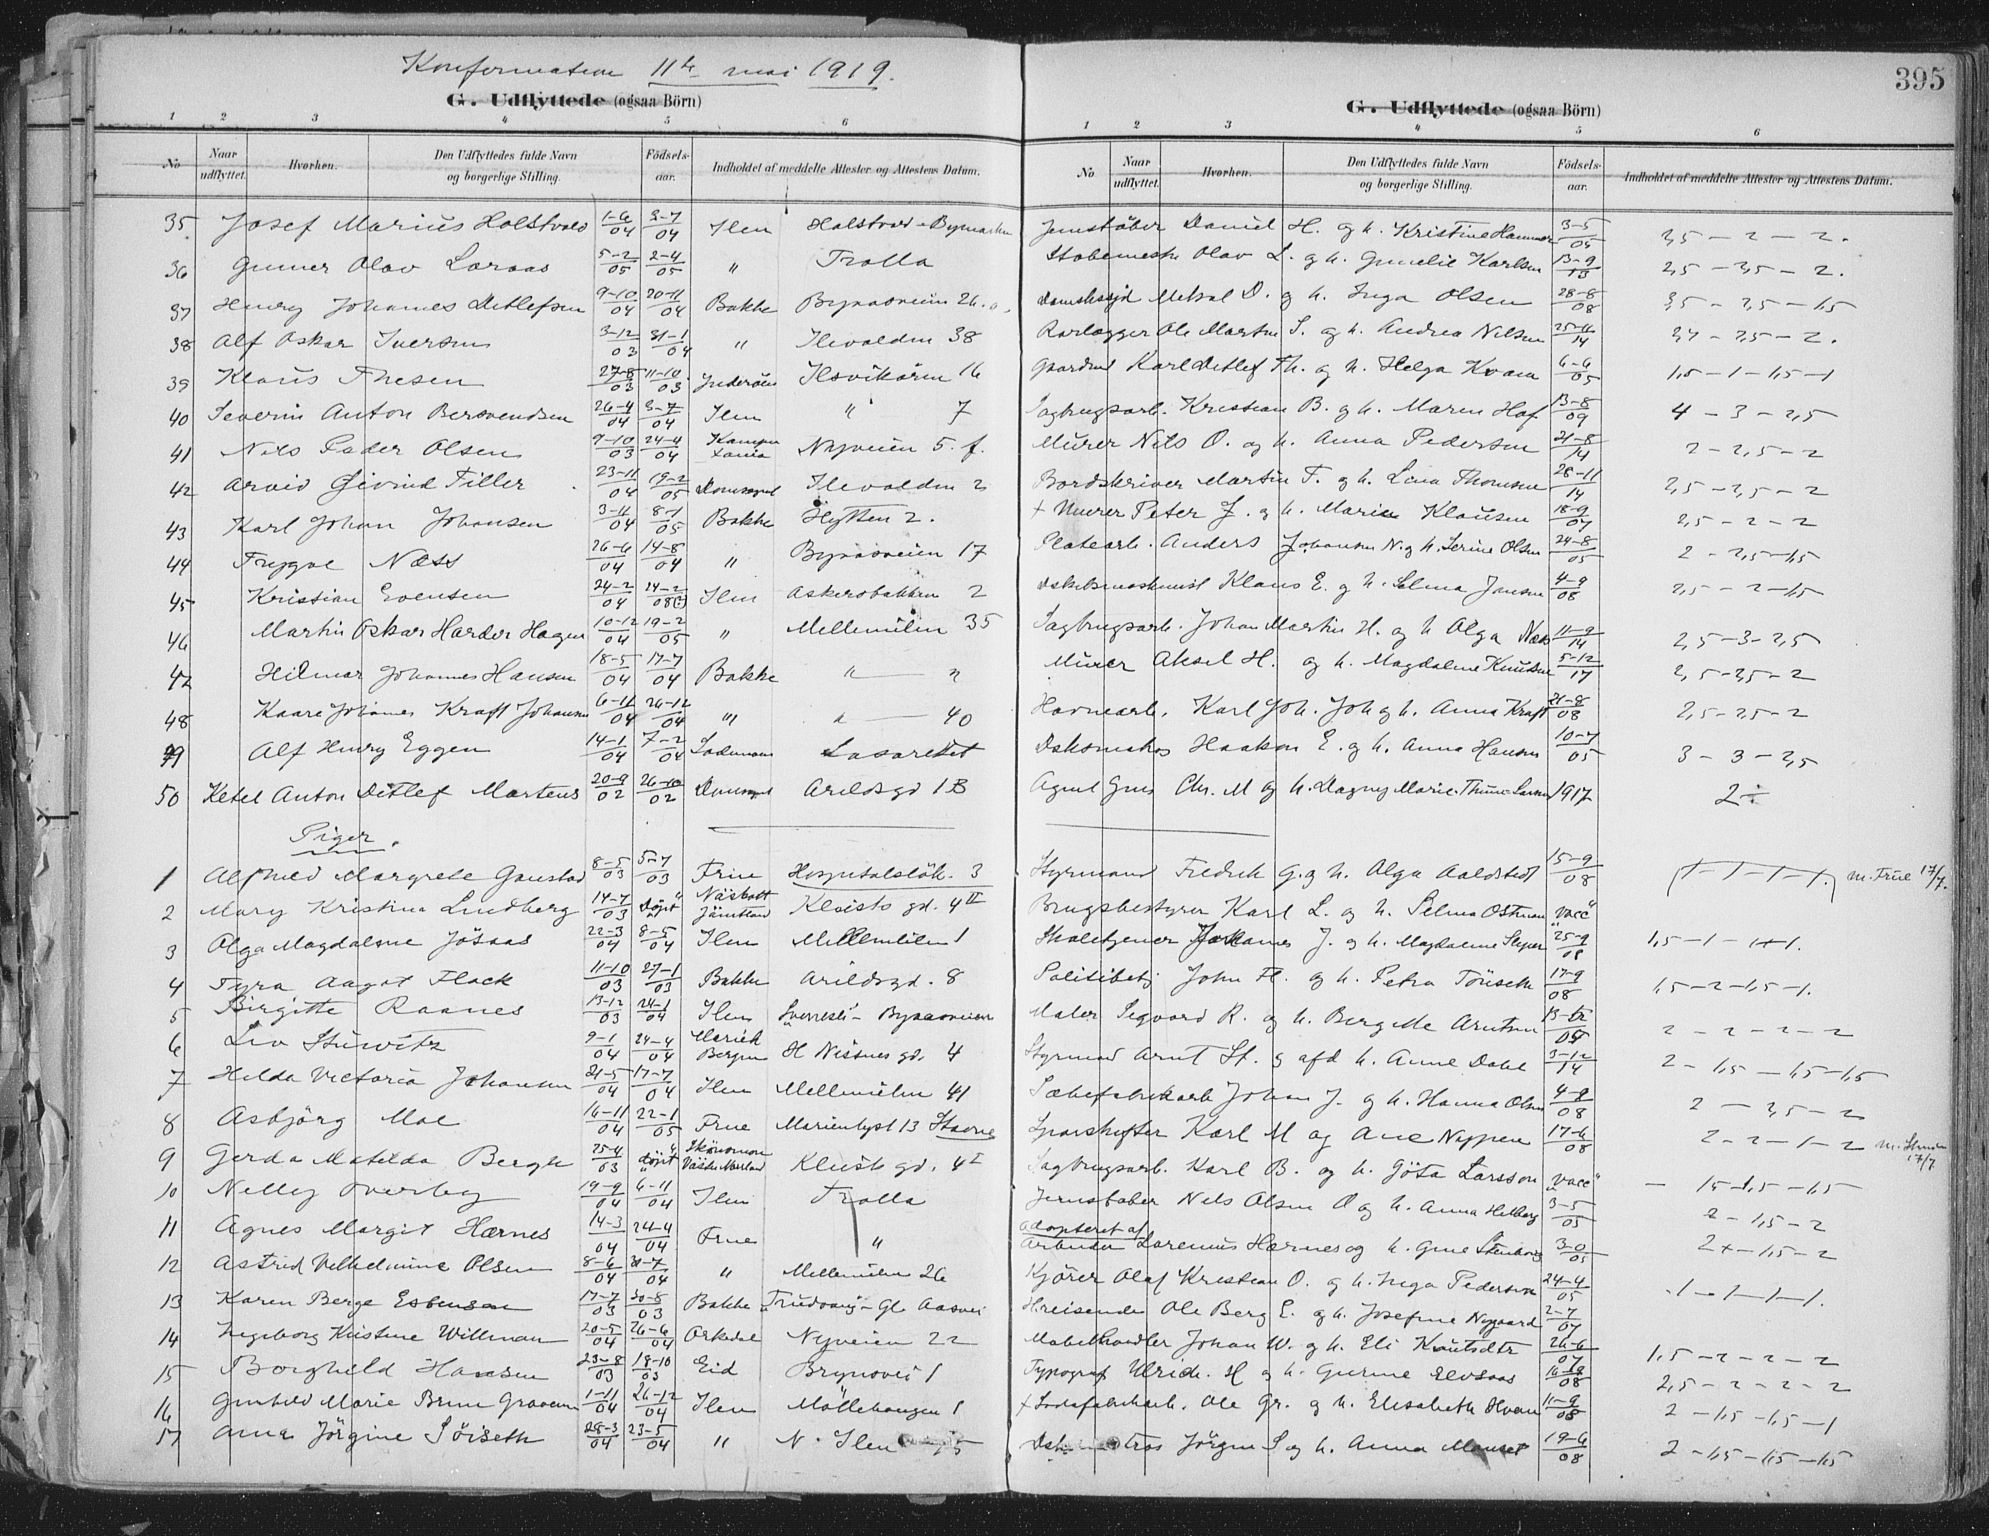 Konfirmation 11te mai 1919.
395
G. Udflyttede (ogsaa Börn)
1 2 3 4 5 6
No Naar udflyttet. Hvorhen. Den Udflyttedes fulde Navn og borgerlige Stilling. Födsels-aar. Indholdet af meddelte Attester og Attestens Datum.
G. Udflyttede (ogsaa Börn)
1 2 3 4 5 6
No Naar udflyttet. Hvorhen. Den Udflyttedes fulde Navn og borgerlige Stilling. Födsels-aar. Indholdet af meddelte Attester og Attestens Datum.
35 Josef Marius Holstvold 1-6/04 3-7/04 Ilen Holstvold - Bymarken Daniel H. og h. Kristine Hammer 3-5/05 2,5 - 2 - 2.
36 Gunnar Olav Loraas 5-2/05 2-4/05 " Trolla Olav L. og h. Gunelie Karlsen 13-9/13 2,5 - 2,5 - 2.
37 Henry Johannes Detlefsen 9-10/04 20-11/04 Bakke Byaasveien 26 D. og h. Inga Olsen 28-8/08 3,5 - 2,5 - 1,5
38 Alf Oskar Iversen 3-12/03 31-1/04 " Ilevolden 38 Rørlægger Ole Martin I. og h. Andrea Nilsen 25-11/14 - 2,5 - 2.
39 Klaus Thesen 27-8/03 11-10/03 Inderøen Ilsvikøren 16 Karl Detlef Th. og h. Helga Kvam 6-6/05 1,5 - 1 - 1,5 - 1
40 Severin Anton Bersvendsen 26-4/04 3-7/04 Ilen " 7 Sagbrugsarb. Kristian B. og h. Maren Hof 13-8/09 4 - 3 - 2,5
41 Nils Peder Olsen 9-10/03 24-4/04 Nyveien 5. f. Murer Nils O. og h. Anna Pedersen 21-8/14 2 - 2,5 - 2
42 Arvid Øivind Tiller 23-11/04 19-2/05 Domsognet Ilevolden 2 Bordskriver Martin T. og h. Lina Thomsen 28-11/14 2,5 - 2,5 - 2
43 Karl Johan Johansen 3-11/04 8-1/05 Bakke Hytten 2. + Murer Peter J. og h. Marie Klausen 18-9/07 2,5 - 2 - 2
44 Trygve Næss 26-6/04 14-8/04 " Byaasveien 17 Platearb. Anders Johansen N. og h. Serine Olsen 24-8/05 2 - 2,5 - 1,5
45 Kristian Evensen 24-2/04 24-2/08(?) Ilen Askersbakken 2 Dskibsmaskinist Klaus E. og h. Selma Jensen 4-9/08 2,5 - 2 - 1,5
46 Martin Oskar Harder Hagen 10-12/04 19-2/05 " Mellemilen 35 Sagbrugsarb. Johan Martin H. og h. Olga Næss 11-9/14 2,5 - 3 - 2,5
47 Hilmar Johannes Hansen 18-5/04 17-7/04 Bakke " — " Murer Aksel H. og h. Magdalene Knutsen 5-12/17 2,5 - 2,5 - 2
48 Kaare Johannes Kraft Johansen 6-11/04 26-12/04 " " — 40 Havnearb. Karl Joh. Joh og h. Anna Kraft 21-8/08 2,5 - 2,5 - 2
49 Alf Henry Eggen 14-1/04 7-2/04 Lademoen Lasarettet Haakon E. og h. Anna Hansen 10-7/05 3 - 3 - 2,5
50 Ketel Anton Detlef Martens 20-9/02 26-10/02 Domsognet Arildsgd 1B Agent Chr. M og h. Dagny Marie Thune Larsen 1917 2÷
Piger.
1 Alfhild Margrete Gaustad 8-5/03 5-7/03 Frue Hospitalsløk. 3 Styrmand Fredrik G. og h. Olga Aaldstedt 15-9/08 1-1-1-1. m. Frue 17/7.
2 Mary Kristina Lindberg 14-7/03 "döpt" Näskott Jämtland Kloisto gd. 4 II Brugsbestyrer Karl L. og h. Selma Østman "vacc"
3 Olga Magdalene Jøsaas 22-3/04 8-5/04 Ilen Mellemilen 1 Johannes J. og h. Magdalene 25-9/08 1,5 - 1 - 1+1.
4 Tyra Aagot Flack 11-10/03 27-1/03 Bakke Arildsgd. 8 Politibetj John Fl. og h. Petra Tönseth 17-9/08 1,5 - 2 - 1,5 - 1.
5 Birgitte Raanes 13-12/03 24-1/04 Ilen Sverresli - Byaasveien Maler Sigvard R. og h. Bergitte Arntsen 2 - 2 - 2 - 2
6 Liv Stüwitz 9-1/04 24-4/04 Bergen H Nissens gd. 4 Styrmand Arnt St. og afd h. Anne Dahl 3-12/14 2 - 1,5 - 1,5 - 1,5
7 Hilda Victoria Johansen 21-5/04 17-7/04 Ilen Mellemilen 41 Sæbefabrikarb Johan J. og h. Hanna Olsen 4-9/08 2 - 2,5 - 2
8 Asbjörg Moe 16-11/04 22-1/05 Frue Marienlyst 13 Stavne Sporskifter Karl M og Ane Nyppen 17-6/08 2 - 2 - 1 - 2 17/7
9 Gerda Matilda Bergh 25-4/03 "döpt" Klosto gd. 4 I Sagbrugsarb. Karl B. og h. Göta Larsson "vacc" —
10 Nelly Overby 19-9/04 6-11/04 Ilen Trolla Jernstøber Nils Olsen O og h. Anna Hilberg 3-5/05 1,5 - 1,5 - 1,5
11 Agnes Margit Hærnes 14-3/04 24-4/04 Frue " adopteret af Arbeider Lorenius Hærnes og h. Gine Stenberg 3-0/05 2 - 1,5 - 2
12 Astrid Vilhelmine Olsen 8-6/04 31-7/04 " Mellemilen 26 Kjører Olaf Kristian O. og h. Inga Pedersen 24-4/05 2+ - 1,5 - 2
13 Karen Berge Esbensen 17-7/03 30-8/03 Bakke Trudvang - Gl Aasvei H.reisende Ole Berg E. og h. Josefine Nygaard 2-7/07 1 - 1 - 1 - 1.
14 Ingeborg Kristine Willman 20-5/04 26-6/04 Orkdal Nyveien 22 Møbelhandler Johan W. og h. Eli Knutsdtr 26-6/07 1,5 - 2 - 2 - 2
15 Borghild Hansen 23-8/03 18-10/03 Eid Brynsvei 1 Typograf Ulrich. H og h. Gurine Elvsaas 16-9/08 2,5 - 2 - 2 - 2
16 Gunhild Marie Brun Graaven 1-11/04 26-12/04 Ilen Möllebangen 1 + Sodafabrikarb. Ole Gr. og h. Elisabeth Hvam 11-9/08 2 - 1,5 - 1,5 - 1
17 Anna Jörgine Söiseth 28-3/04 23-5/04 " N. Ilen 75 Jörgen S og h. Anna Monset 19-6/08 2 - 1,5 - 1,5 - 1,5